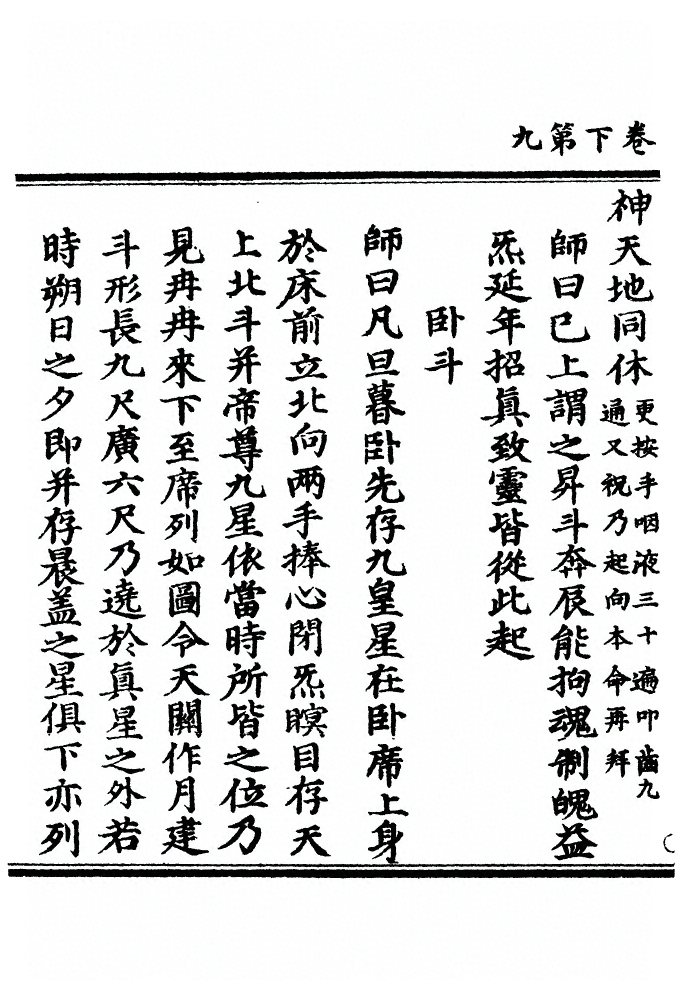 卷下第九
神天地同休更按手咽液三十遍叩齒九
通又祝乃起向本命再拜
師曰已上謂之昇斗奔辰能拘魂制魄益
炁延年招眞致靈皆從此起
卧斗
師曰凡旦暮卧先存九皇星在卧席上身
於床前立北向兩手捧心閉炁瞑目存天
上北斗并帝尊九星依當時所皆之位乃
見冉冉來下至席列如圖令天關作月建
斗形長九尺廣六尺乃遶於眞星之外若
時朔日之夕即并存晨盖之星俱下亦列